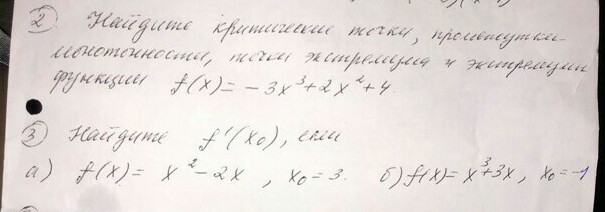 2 Найдите критические точки, промежутки
монотонности, точки экстремума и экстремумы
функции f(x) = -3x³+2x²+4.
3 Найдите f'(x₀), если
а) f(x) = x²-2x, x₀=3. б) f(x)= x³+3x, x₀=-1